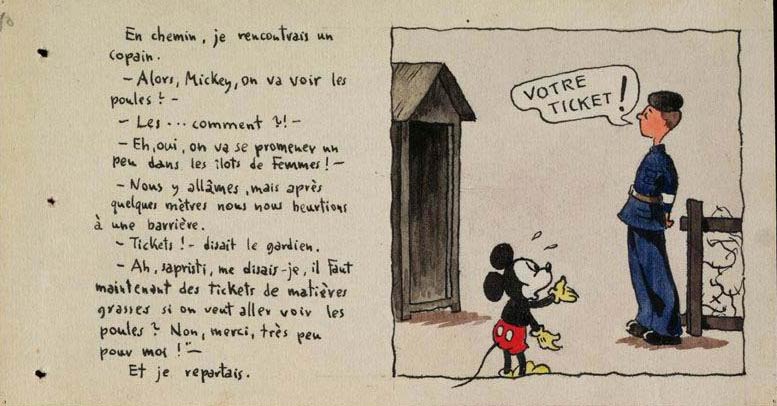 En chemin, je rencontrais un
copain.
— Alors, Mickey, on va voir les
poules ? —
— Les ... comment ?! —
— Eh, oui, on va se promener un
peu dans les îlots de Femmes ! —
— Nous y allâmes, mais après
quelques mètres nous nous heurtions
à une barrière.
— Tickets ! — disait le gardien.
— Ah, sapristi, me disais-je, il faut
maintenant des tickets de matières
grasses si on veut aller voir les
poules ? Non, merci, très peu
pour moi ! —
Et je repartais.
VOTRE
TICKET !